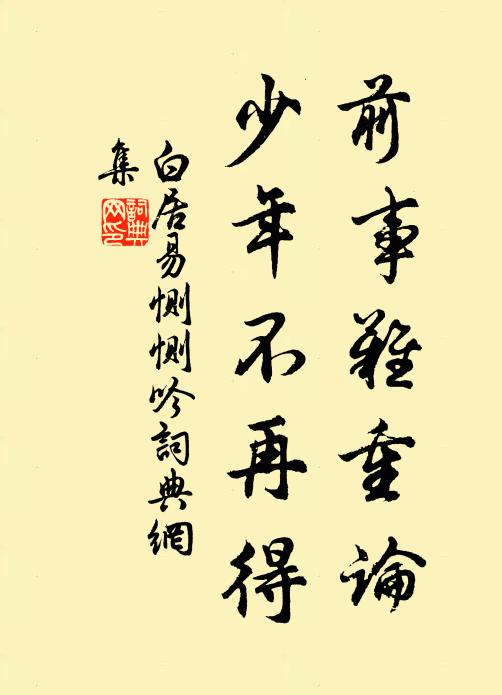 前事難重論
少年不再得
白居易惻惻吟詞典網
集
詞典
网印